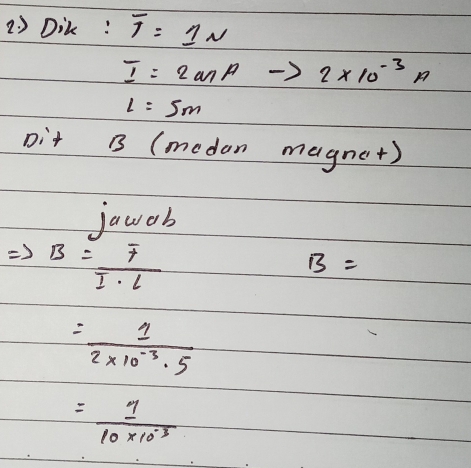 2.) Dik : F = 1 N
I = 2 mA -> 2 x 10⁻³ A
l = 5m
Dit B (medan magnet)
jawab
=> B = F / I . l
B =
= 1 / 2 x 10⁻³ . 5
= 1 / 10 x 10⁻³